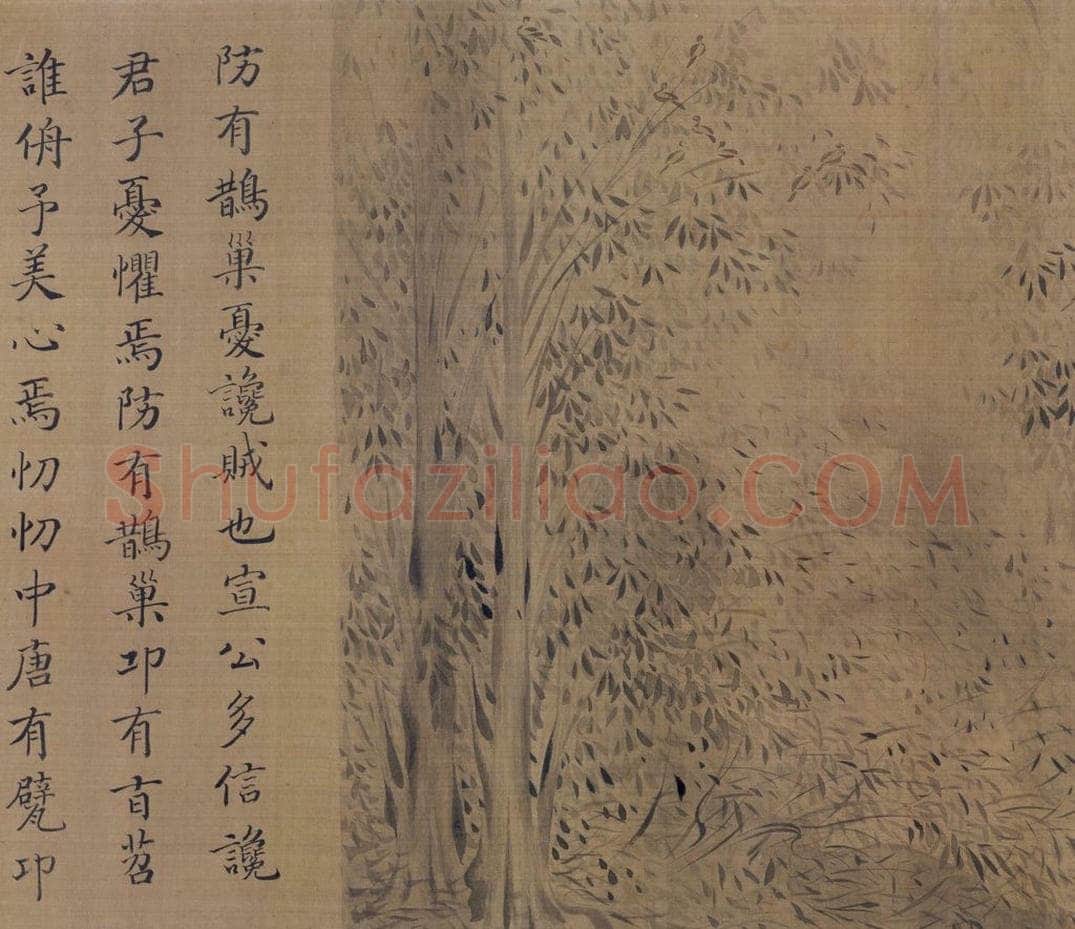 防有鵲巢憂讒賊也宣公多信讒
君子憂懼焉防有鵲巢邛有旨苕
誰侜予美心焉忉忉中唐有甓邛
Shufaziliao.COM